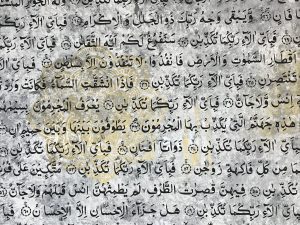 فَانٍ وَيَبْقَى وَجْهُ رَبِّكَ ذُو الْجَلَلِ وَالْإِكْرَامِ
فَبِأَيِّ آلَاءِ رَبِّكُمَا تُكَذِّبَنِ سَنَفْرُغُ لَكُمْ أَيُّهَ الثَّقَلَانِ فَبِأَيِّ آلَاءِ رَبِّكُمَا
أَقْطَارِ السَّمَوَتِ وَالْأَرْضِ فَانْفُذُوا لَا تَنْفُذُونَ إِلَّا
تَنْتَصِرَانِ فَبِأَيِّ آلَاءِ رَبِّكُمَا تُكَذِّبَنِ فَإِذَا انْشَقَّتِ السَّمَاءُ فَكَانَتْ وَرْدَةً
إِنْسٌ وَلَا جَانٌّ فَبِأَيِّ آلَاءِ رَبِّكُمَا تُكَذِّبَنِ يُعْرَفُ الْمُجْرِمُونَ
هَذِهِ جَهَنَّمُ الَّتِي يُكَذِّبُ بِهَا الْمُجْرِمُونَ يَطُوفُونَ بَيْنَهَا وَبَيْنَ حَمِيمٍ
فَبِأَيِّ آلَاءِ رَبِّكُمَا تُكَذِّبَنِ ذَوَاتَا أَفْنَانٍ فَبِأَيِّ آلَاءِ رَبِّكُمَا تُكَذِّبَنِ
مِنْ كُلِّ فَكِهَةٍ زَوْجَنِ فَبِأَيِّ آلَاءِ رَبِّكُمَا تُكَذِّبَنِ مُتَّكِئِينَ عَلَى
فِيهِنَّ قَصِرَتُ الطَّرْفِ لَمْ يَطْمِثْهُنَّ إِنْسٌ قَبْلَهُمْ وَلَا جَانٌّ
آلَاءِ رَبِّكُمَا تُكَذِّبَنِ هَلْ جَزَاءُ الْإِحْسَانِ إِلَّا الْإِحْسَانُ